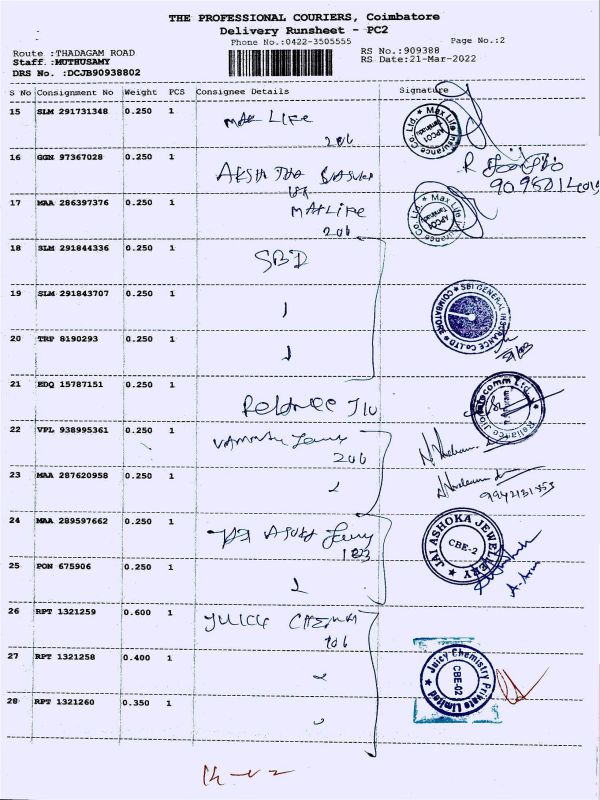 THE PROFESSIONAL COURIERS, Coimbatore
Delivery Runsheet - PC2
Phone No.:0422-3505555
Page No.:2
Route :THADAGAM ROAD
RS No.:909388
Staff :MUTHUSAMY
RS Date:21-Mar-2022
DRS No. :DCJB90938802
S No Consignment No Weight PCS Consignee Details Signature
15 SLM 291731348 0.250 1 MAX LIFE
206
Max Life Insurance Co. Ltd.
16 GGN 97367028 0.250 1
17 MAA 286397376 0.250 1 MAX LIFE
206
Max Life Insurance Co. Ltd.
18 SLM 291844336 0.250 1 SBI
19 SLM 291843707 0.250 1
SBI GENERAL INSURANCE CO.LTD COIMBATORE
20 TRP 8190293 0.250 1
21 EDQ 15787151 0.250 1 Reliance JIO
Reliance Jio Infocomm Ltd.
22 VPL 938995361 0.250 1
206
23 MAA 287620958 0.250 1
24 MAA 289597662 0.250 1
JAI ASHOKA JEWELLERY CBE-2
25 PON 675906 0.250 1
26 RPT 1321259 0.600 1 JUICY CHEMI
106
27 RPT 1321258 0.400 1
Juicy Chemistry Private Limited CBE-02
28 RPT 1321260 0.350 1